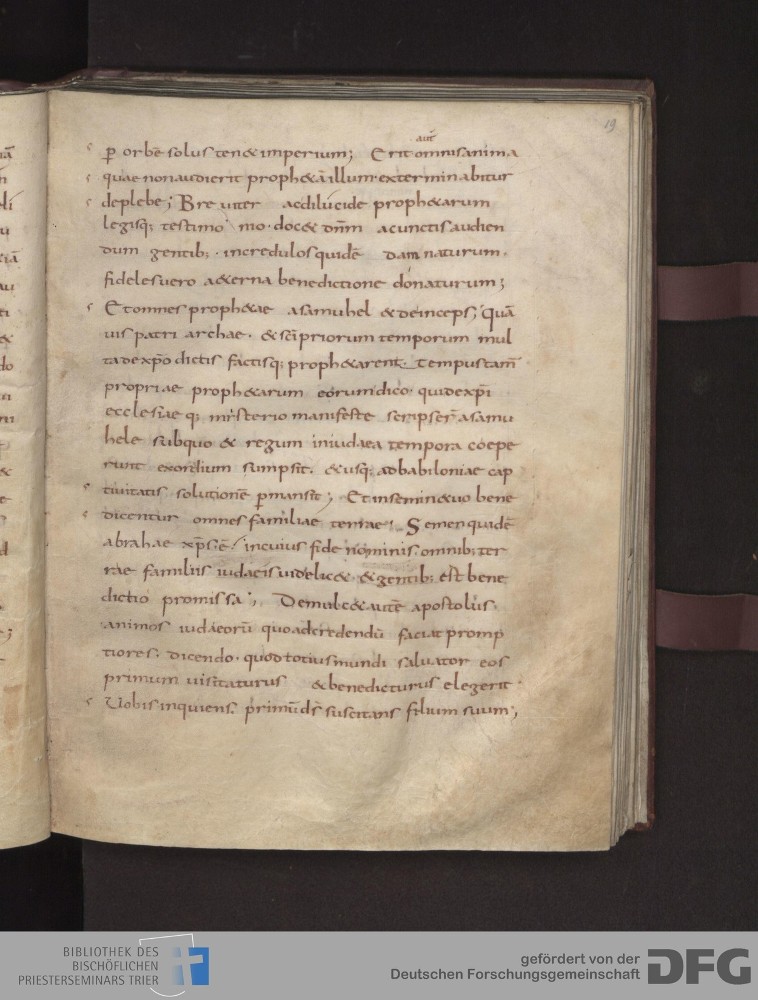 19
aut̄
ꝑ orbē solus ten&imperium; Erit omnisanima
quae nonaudierit proph&ā illum· exterminabitur
deplebe; Breuiter acdilucide proph&arum
legisq; testimonio· doc& dn̄m acunctisaudien
dum gentib;· incredulosquidē damnaturum·
fidelesuero a&erna benedictione donaturum;
Etomnes proph&ae asamuhel &deinceps; quā
uis patriarchae· &sc̄i priorum temporum mul
ta dexp̄o dictis factisq; proph&arent· Tempustam̄
propriae proph&arum eorumdico· quidexp̄i
ecclesiae q; misterio manifeste scripser̄ asamu
hele subquo & regum iniudaea tempora coepe
runt exordium sumpsit· &usq; adbabiloniae cap
tiuitatis solutionē ꝑmansit; Etinsemin&uo bene
dicentur omnes familiae terrae; Semen quidē
abrahae xp̄s ē· incuius fide nominis omnib; ter
rae familiis iudaeis uidelic& &gentib; est bene
dictio promissa; Demulc&autē apostolus
animos iudaeorū quoadcredendū faciat promp
tiores· dicendo· quodtotiusmundi saluator eos
primum uisitaturus &benedicturus elegerit·
Uobis inquiens· primūd̄s suscitans filium suum;
BIBLIOTHEK DES
BISCHÖFLICHEN
PRIESTERSEMINARS TRIER
gefördert von der
Deutschen Forschungsgemeinschaft
DFG